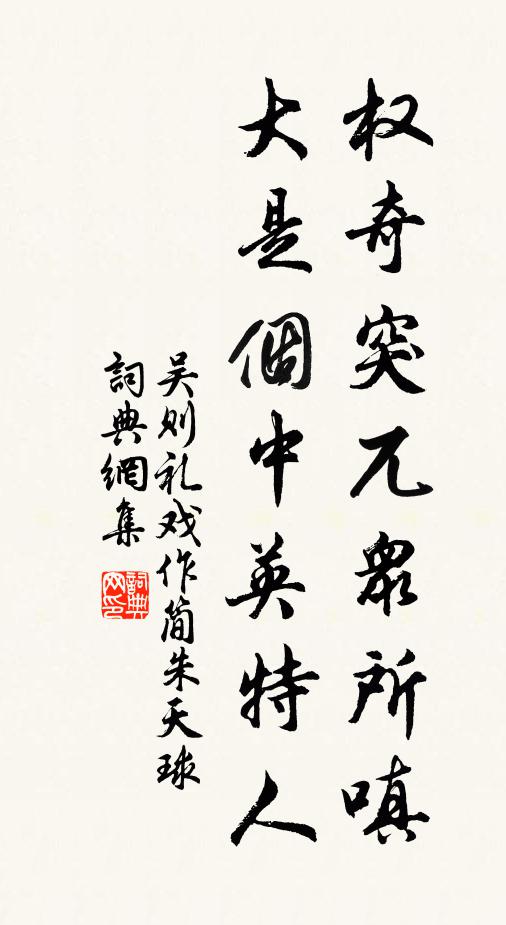 权奇突兀眾所嗔
大是個中英特人
吴则礼戏作简朱天球
詞典網集
詞典网印